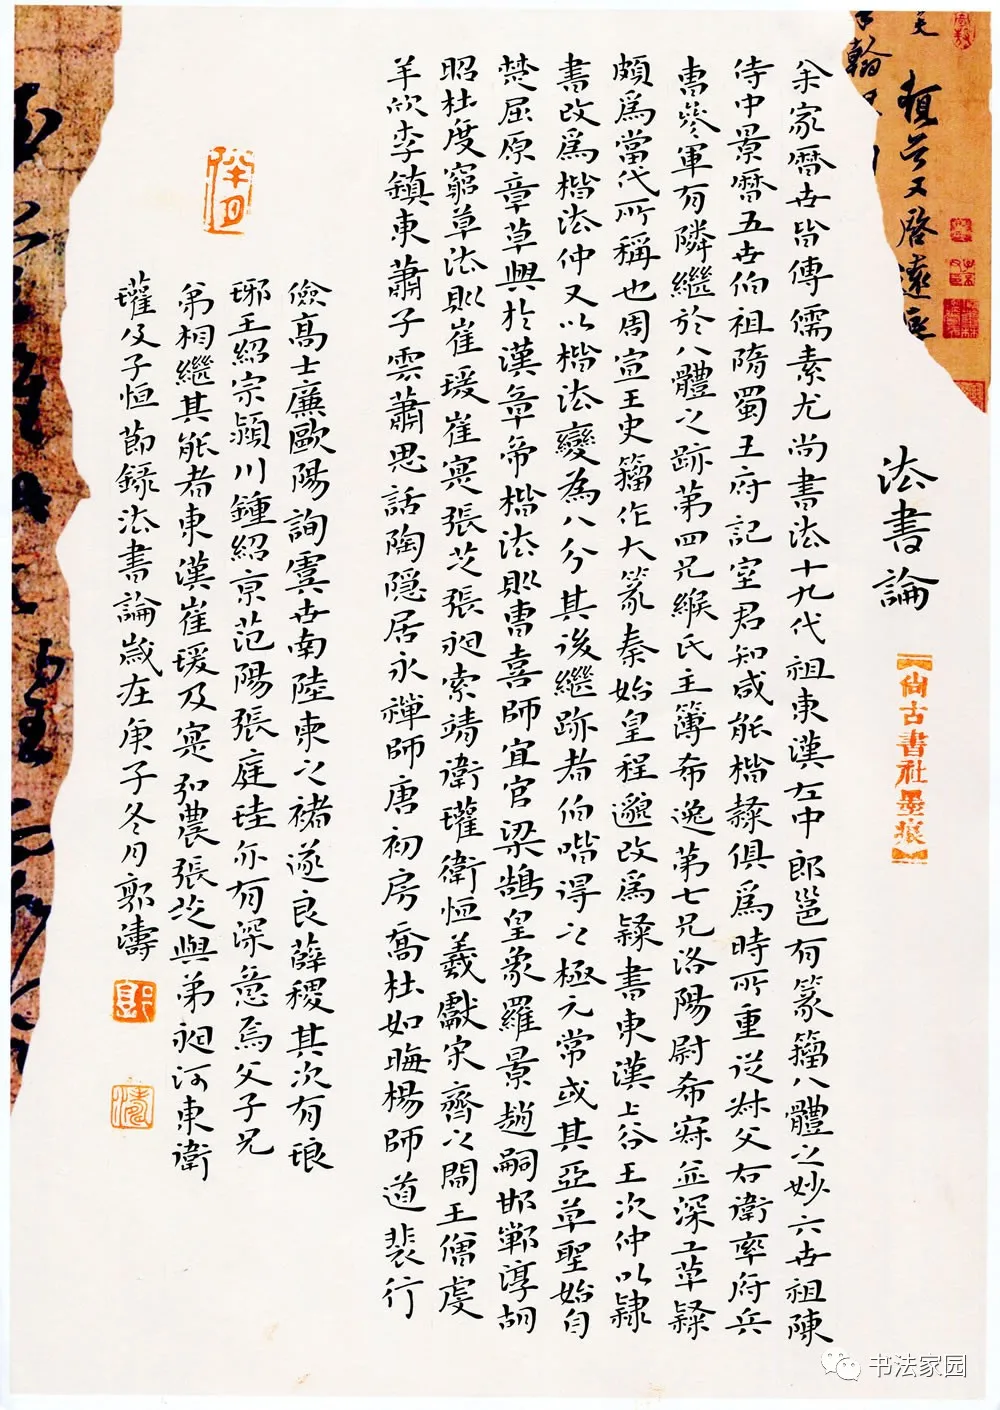 法書論
【尚古書社墨痕】
余家曆世皆傳儒素尤尚書法十九代祖東漢左中郎邕有篆籀八體之妙六世祖陳
侍中景曆五世伯祖隋蜀王府記室君知咸能楷隸俱爲時所重從叔父右衛率府兵
曹參軍有隣繼於八體之跡第四兄緱氏主簿希逸第七兄洛陽尉希寂並深工草隸
頗爲當代所稱也周宣王史籀作大篆秦始皇程邈改爲隸書東漢上谷王次仲以隸
書改爲楷法仲又以楷法變為八分其後繼跡者伯喈得之極元常或其亞草聖始自
楚屈原章草興於漢章帝楷法則曹喜師宜官梁鵠皇象羅景趙嗣邯鄲淳胡
昭杜度窮草法則崔瑗崔寔張芝張昶索靖衛瓘衛恒羲獻宋齊之間王僧虔
羊欣李鎮東蕭子雲蕭思話陶隱居永禪師唐初房喬杜如晦楊師道裴行
儉高士廉歐陽詢虞世南陸柬之褚遂良薛稷其次有琅
琊王紹宗潁川鍾紹京范陽張庭珪亦有深意焉父子兄
弟相繼其能者東漢崔瑗及寔弘農張芝與弟昶河東衛
瓘及子恒節錄法書論歲在庚子冬月郭濤
书法家园